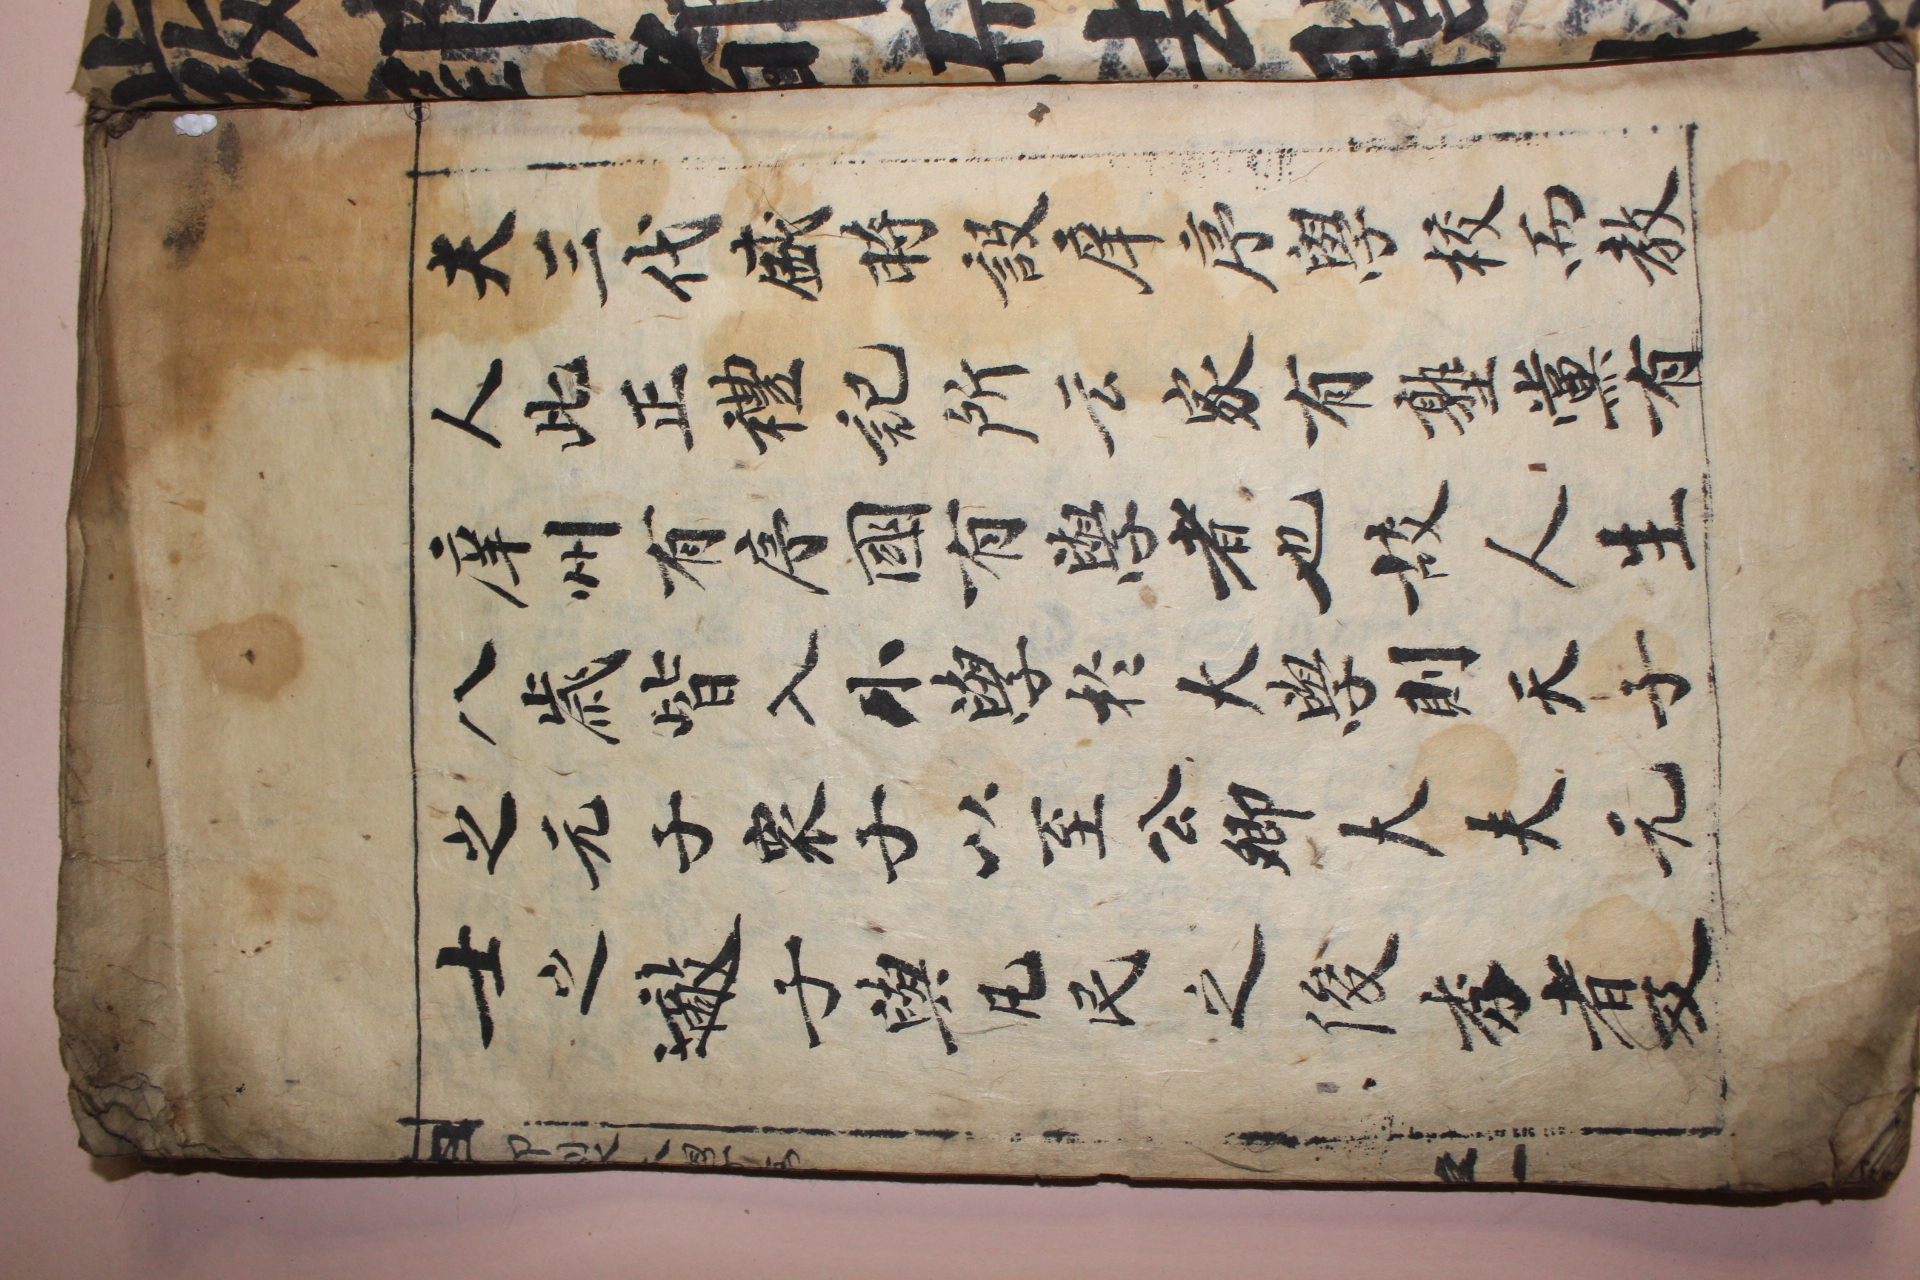 夫三代盛時設庠序學校而教
人此正禮記所云家有塾黨有
庠州有序國有學者也故人生
八歲皆入小學於大學則天子
之元子衆子以至公卿大夫元
士之適子與凡民之俊秀者及